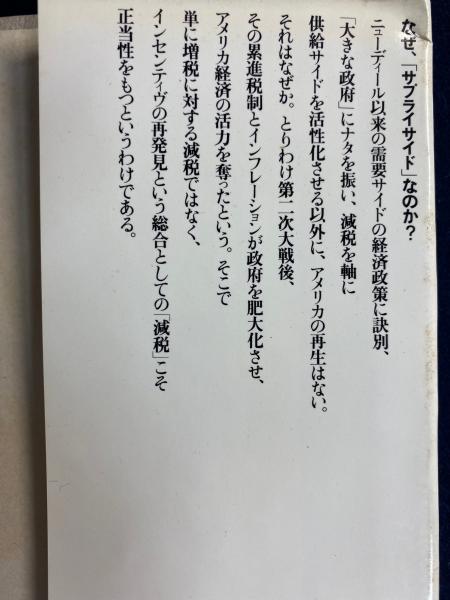 なぜ、「サプライサイド」なのか?
ニューディール以来の需要サイドの経済政策に訣別、
「大きな政府」にナタを振い、減税を軸に
供給サイドを活性化させる以外に、アメリカの再生はない。
それはなぜか。とりわけ第二次大戦後、
その累進税制とインフレーションが政府を肥大化させ、
アメリカ経済の活力を奪ったという。そこで
単に増税に対する減税ではなく、
インセンティヴの再発見という総合としての「減税」こそ
正当性をもつというわけである。